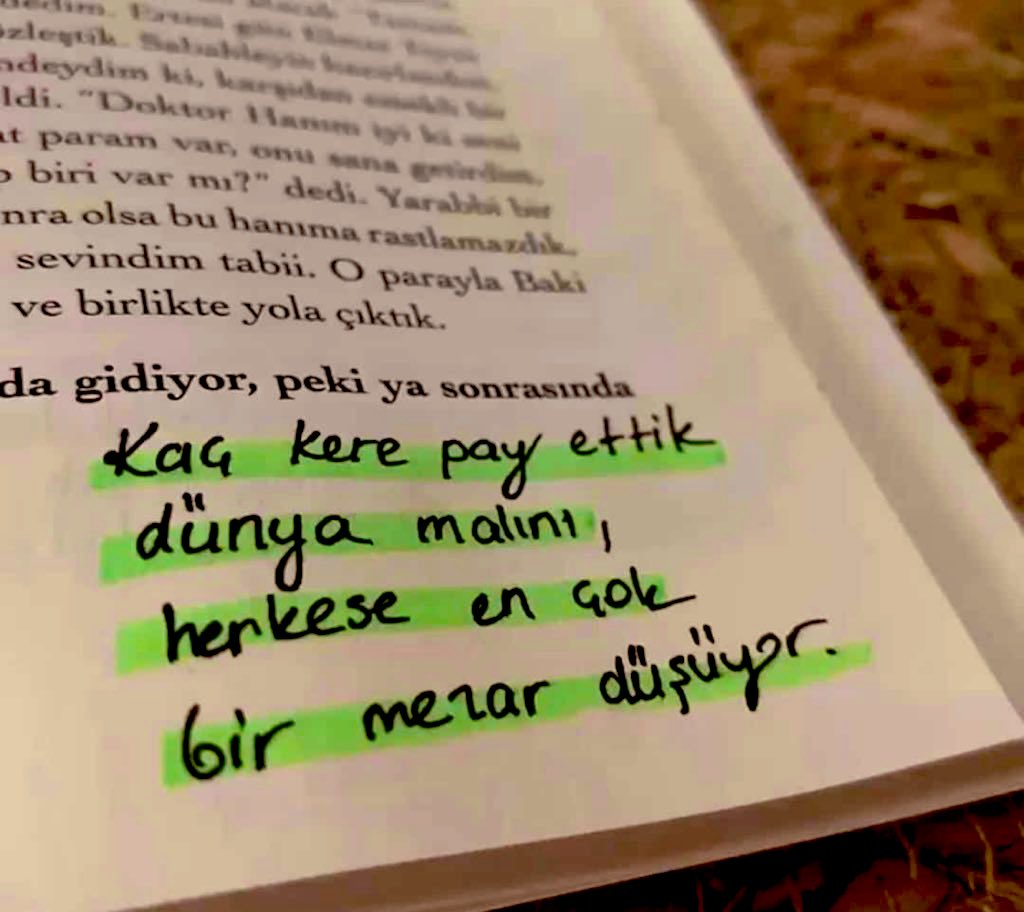 özleştik. Sabahleyin
ndeydim ki, karşıdan
ldi. "Doktor Hanım iyi ki seni
at param var, onu sana getirdim.
biri var mı?" dedi. Yarabbi bir
nra olsa bu hanıma rastlamazdık.
sevindim tabii. O parayla Baki
ve birlikte yola çıktık.
da gidiyor, peki ya sonrasında
Kaç kere pay ettik
dünya malını,
herkese en çok
bir mezar düşüyor.